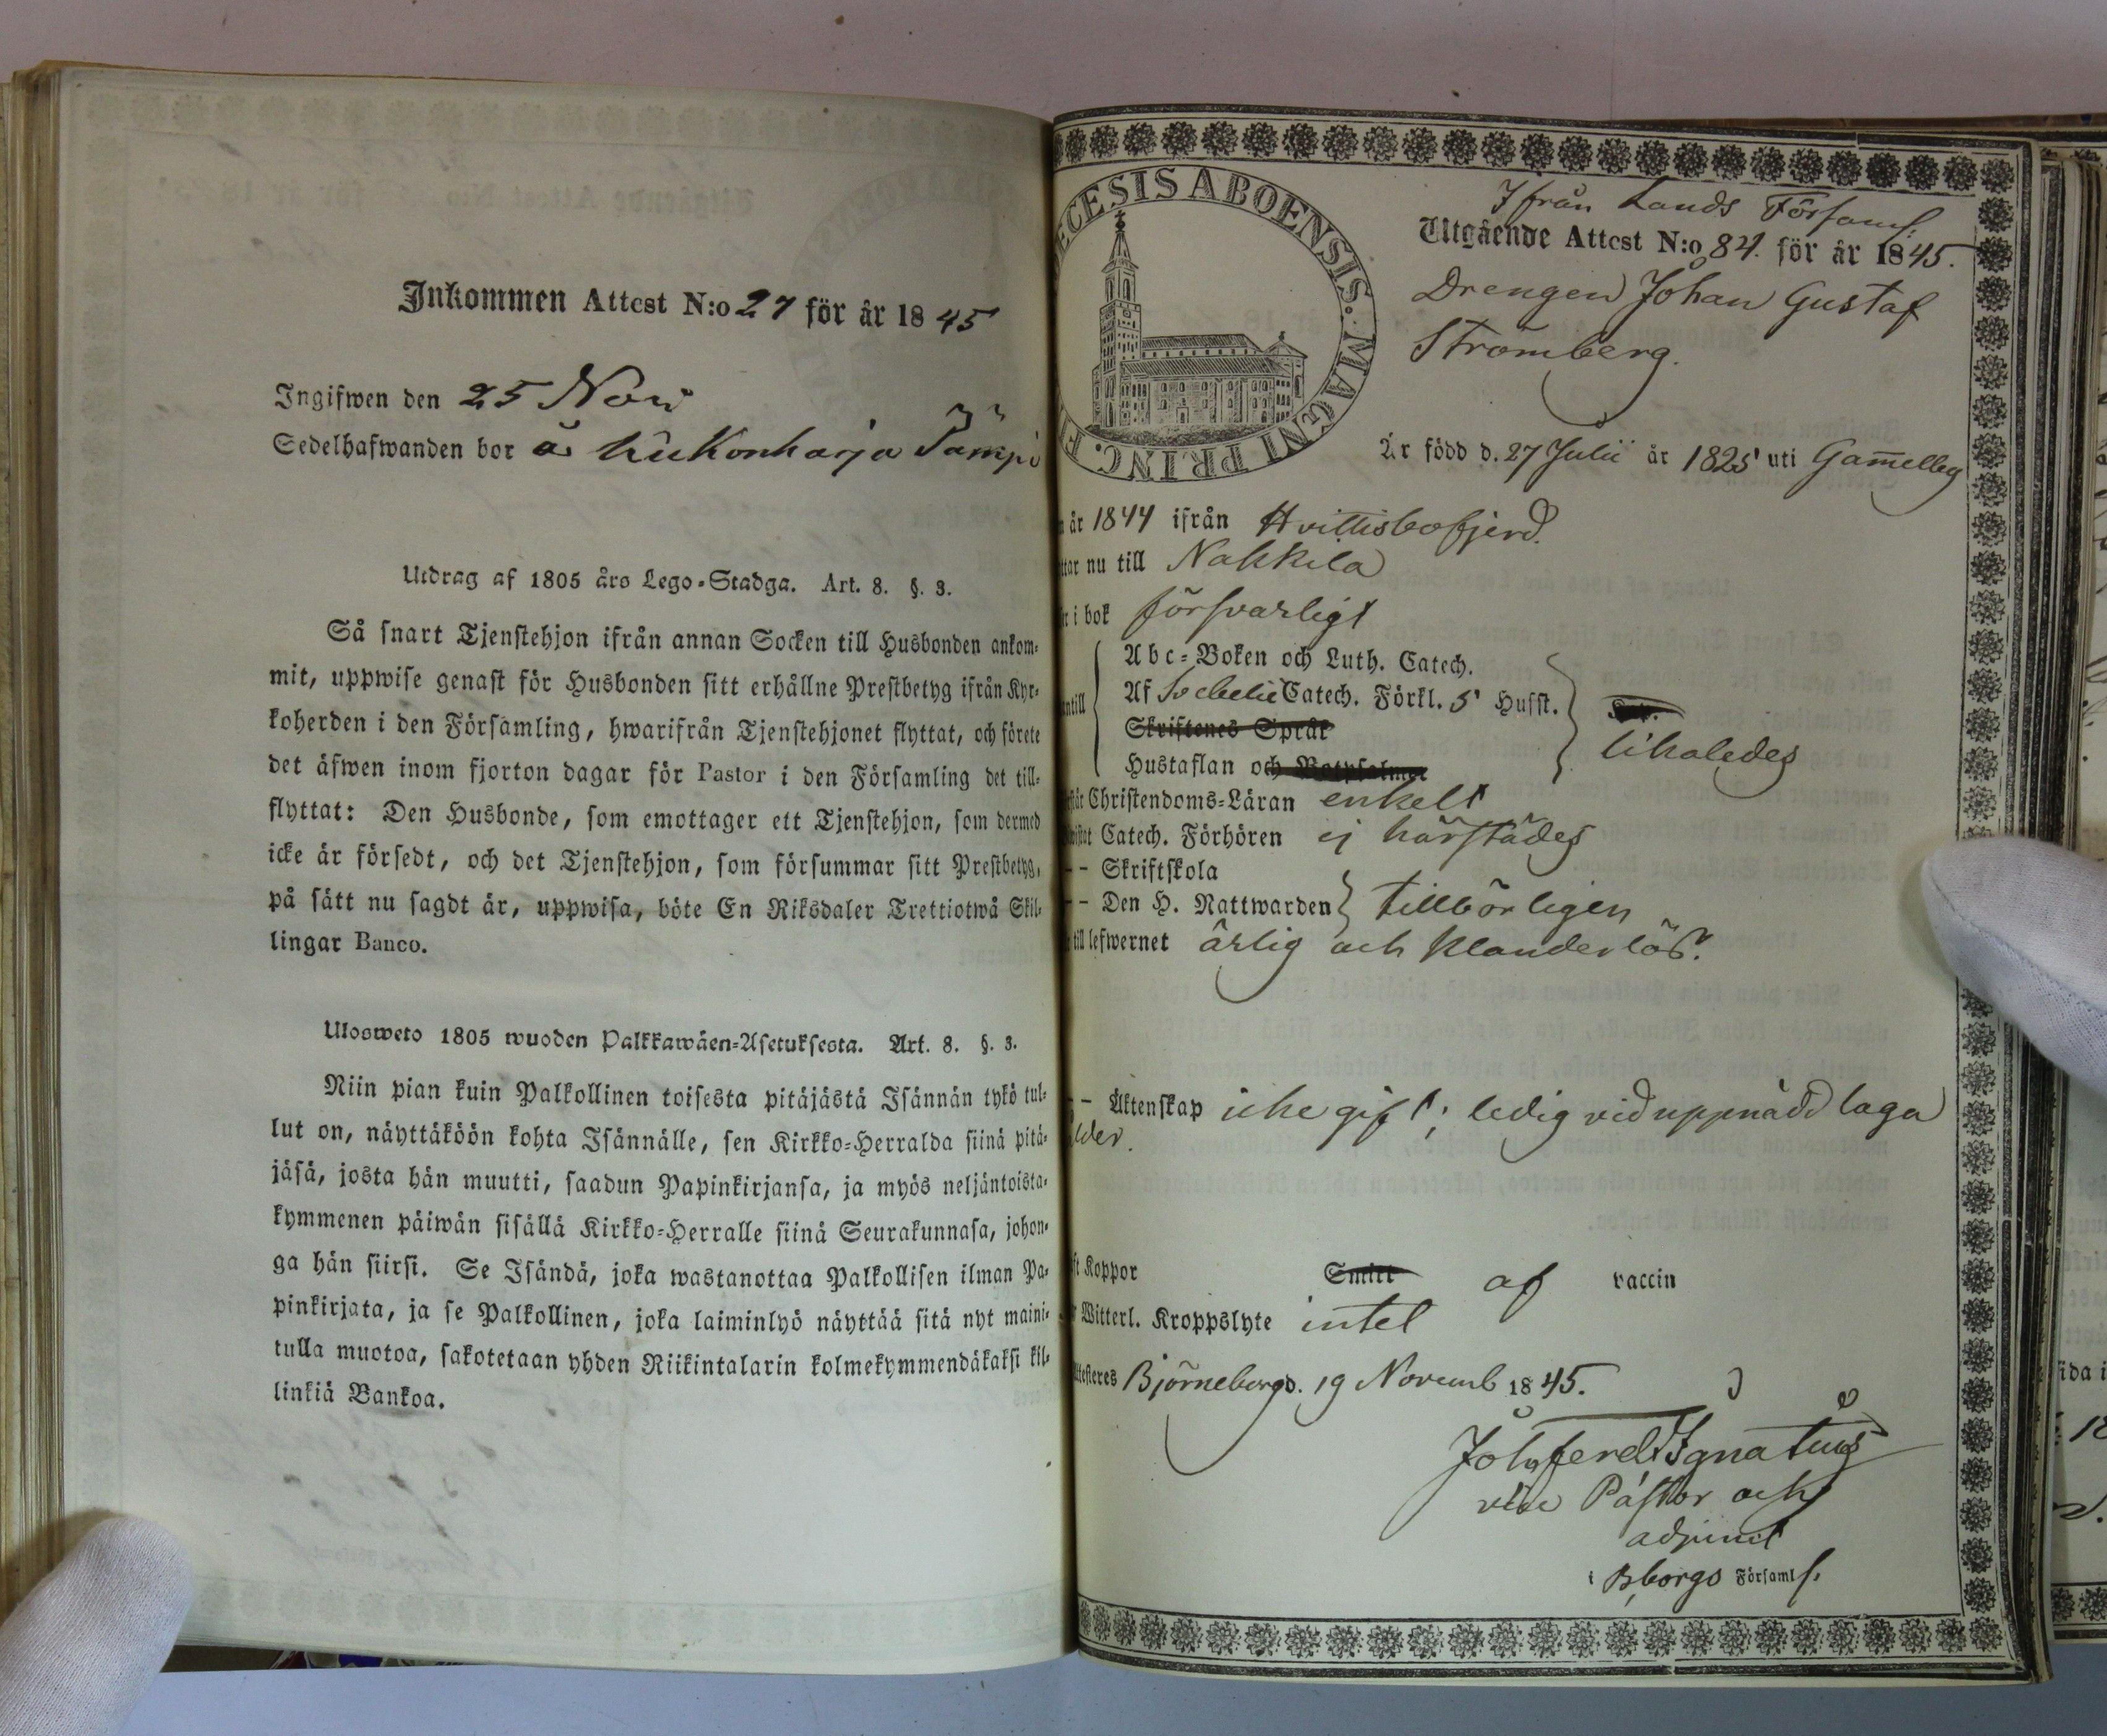 Inkommen Attest N:o 27 för år 1845
Ingifwen den 25 Nov
Sedelhafwanden bor å Kukonharja Tämpi
Utdrag af 1805 års Lego-Stadga. Art. 8. §. 3.
Så snart Tjenstehjon ifrån annan Socken till Husbonden ankom-
mit, uppwise genast för Husbonden sitt erhållne Prestbetyg ifrån Kyr-
koherden i den Församling, hwarifrån Tjenstehjonet flyttat, och förete
det äfwen inom fjorton dagar för Pastor i den Församling det till-
flyttat: Den Husbonde, som emottager ett Tjenstehjon, som dermed
icke är försedt, och det Tjenstehjon, som försummar sitt Prestbetyg,
på sätt nu sagdt är, uppwisa, böte En Riksdaler Trettiotwå Skil-
lingar Banco.
Ulosweto 1805 wuoden Palkkawäen-Asetuksesta. Art. 8. §. 3.
Niin pian kuin Palkollinen toisesta pitäjästä Isännän tykö tul-
lut on, näyttäköön kohta Isännälle, sen Kirkko-Herralda siinä pitä-
jäsä, josta hän muutti, saadun Papinkirjansa, ja myös neljäntoista-
kymmenen päiwän sisällä Kirkko-Herralle siinä Seurakunnasa, johon-
ga hän siirsi. Se Isändä, joka wastanottaa Palkollisen ilman Pa-
pinkirjata, ja se Palkollinen, joka laiminlyö näyttää sitä nyt maini-
tulla muotoa, sakotetaan yhden Riikintalarin kolmekymmendäkaksi kil-
linkiä Bankoa.
ECESIS ABOENSIS. MAGNI PRINC. F
Ifrån Lands Församl:
Utgående Attest N:o 84. för år 1845.
Drengen Johan Gustaf
Strömberg.
Är född d. 27 Julii år 1825 uti Gamelby
år 1844 ifrån Hvittisbofjerd.
ttar nu till Nakkila
i bok försvarligt
Abc-Boken och Luth. Catech.
ntill Af Svebelii Catech. Förkl. 5 Husst.
Skriftenes Språk
likaledes
Hustaflan och Botpsalmer
Christendoms-Läran enkelt
Catech. Förhören ej härstädes
- - Skriftskola
- - Den H. Nattwarden tillbörligen
till lefwernet ärlig och klanderlös.
- Äktenskap icke gift; ledig vid uppnådd laga
ålder.
ft Koppor Smitt af vaccin
Witterl. Kroppslyte intet
Attesteres Björneborg d. 19 Novemb 1845.
Joh. Ferd. Ignatius
vice Pastor och
adjunct
i Bjborgs Församl.